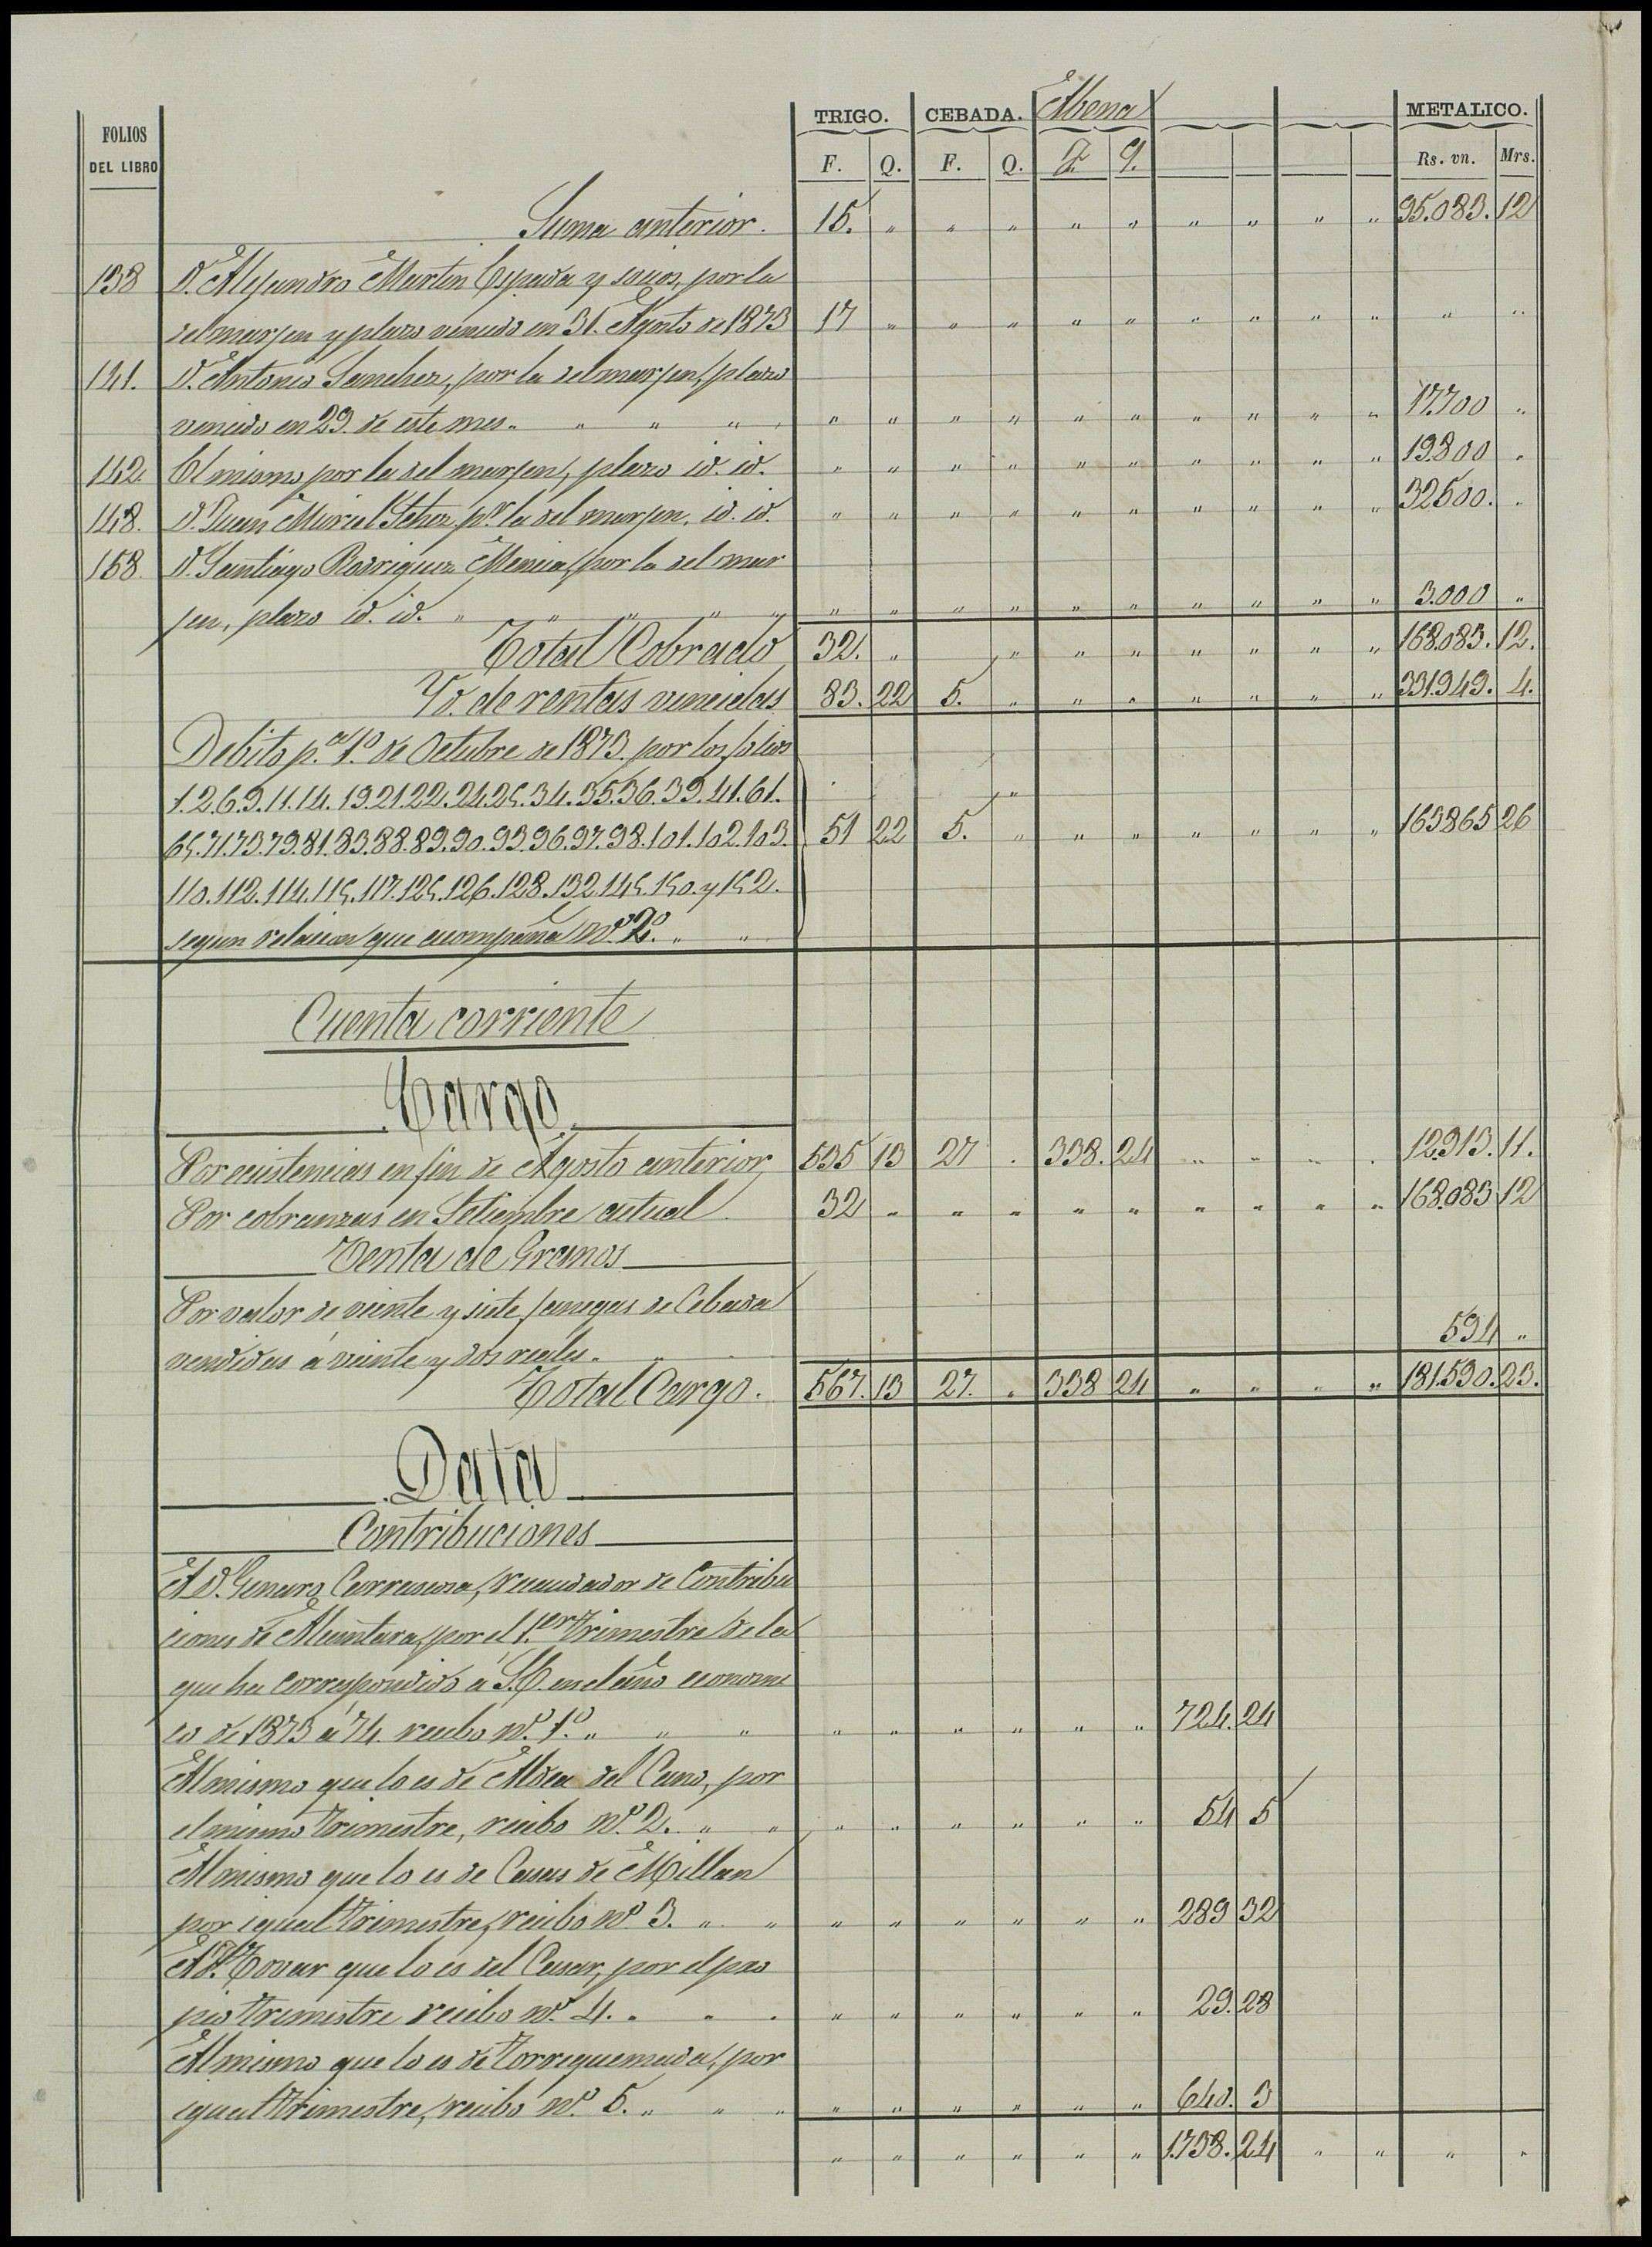 FOLIOS DEL LIBRO TRIGO. CEBADA. Abena METALICO.
F. Q. F. Q. F. Q. Rs. vn. Mrs.
Suma anterior. 15. " " " " " " " " " 95.083. 12
138 D. Alejandro Martin Espada y socios, por la
del marjen y plazo vencido en 31. Agosto de 1873 17 " " " " " " " " " " "
141. D. Antonio Sanchez, por la del marjen, plazo
vencido en 29. de este mes. " " " " " " " " " " " " " " 17.700 "
142. El mismo por la del marjen, plazo id. id. " " " " " " " " " " 19.800 "
148. D. Juan Muriel Sthez, pr. la del marjen, id. id. " " " " " " " " " " 32.500. "
158. D. Santiago Rodriguez Mencia, por la del mar
jen, plazo id. id. " " " " " " " " " " " " " " " 3.000 "
Total Cobrado 32. " " " " " " " " 168.083. 12.
Yd. de rentas vencidas 83. 22 5. " " " " " " " 331.949. 4.
Debito pa. 1º. de Octubre de 1873. por los folios
1. 2. 6. 9. 11. 14. 19. 21. 22. 24. 25. 34. 35. 36. 39. 41. 61.
65. 71. 73. 79. 81. 83. 88. 89. 90. 93. 96. 97. 98. 101. 102. 103. 51 22 5. " " " " " " " 163865 26
110. 112. 114. 115. 117. 125. 126. 128. 132. 145. 150. y 152.
segun relacion que acompaña nº. 2º. " "
Cuenta corriente
Cargo
Por existencias en fin de Agosto anterior 535 13 27 . 338. 24 " " " " 12.913. 11.
Por cobranzas en Setiembre actual 32 " " " " " " " " " 168.083 12
Venta de Granos
Por valor de veinte y siete fanegas de Cebada
vendidas á veinte y dos reales. 594 "
Total Cargo. 567. 13 27. " 338 24 " " " " 181.590. 23.
Data
Contribuciones
A D. Genaro Carrascosa, recaudador de Contribu
ciones de Alcantara, por el 1.er Trimestre de la
que ha correspondido a S.E. en el año economi
co de 1873 a 74. recibo nº. 1º. " " " " " " " " " 724. 24
Al mismo que lo es de Aldea del Cano, por
el mismo trimestre, recibo nº. 2. " " " " " " " " 54 5
Al mismo que lo es de Casas de Millan
por igual trimestre, recibo nº 3. " " " " " " " " 289 32
A D. Tovar que lo es del Casar, por el pro
pio trimestre recibo nº. 4. " " " " " " " " " 29. 28
Al mismo que lo es de Torrequemada, por
igual trimestre, recibo nº. 5. " " " " " " " " " 640. 3
" " " " " " 1.738. 24 " " " "